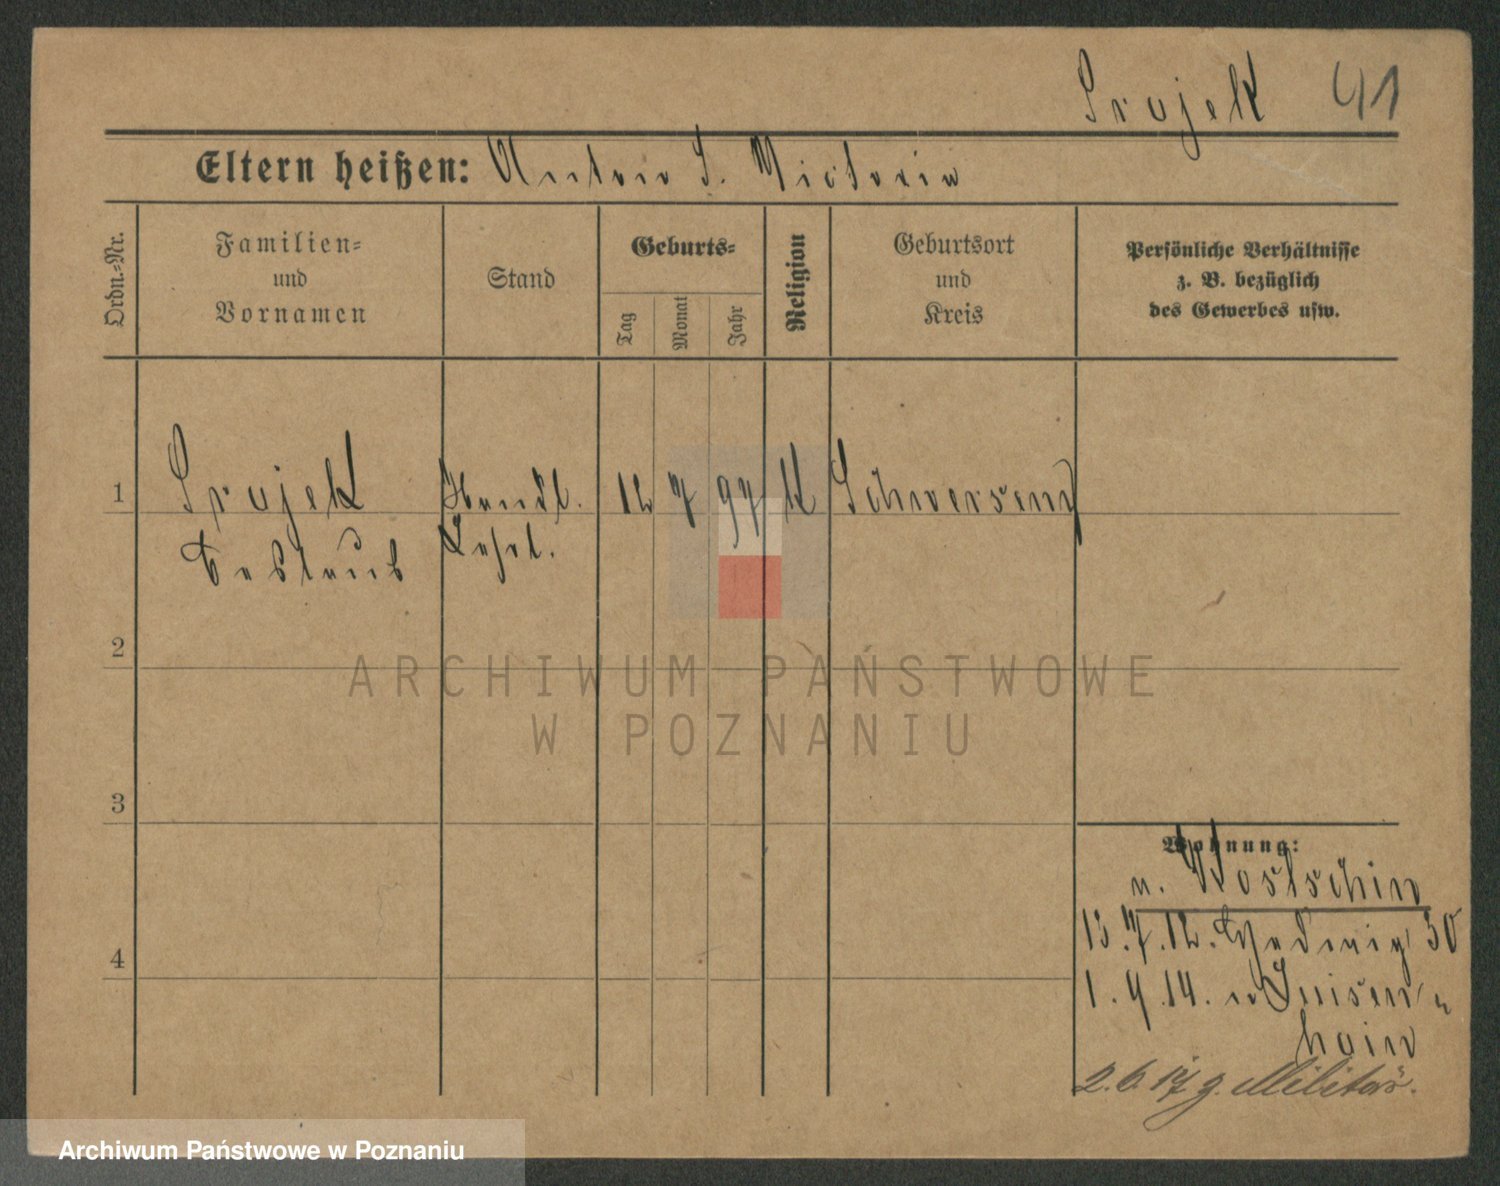 Srojek 41
Eltern heißen: Anton S. Victoria
Ordn.-Nr.
Familien-
und
Vornamen
Stand
Geburts-
Tag
Monat
Jahr
Religion
Geburtsort
und
Kreis
Persönliche Verhältnisse
z. B. bezüglich
des Gewerbes usw.
1 Srojek Handl. 12 7 97 K Schwersenz
Lehrl.
2
3
4
Wohnung:
n. Kostschin
13.7.12. Hedwig 30
1.9.14. n Luisen-
hain
2.6.17 z. Militär.
ARCHIWUM PAŃSTWOWE
W POZNANIU
Archiwum Państwowe w Poznaniu